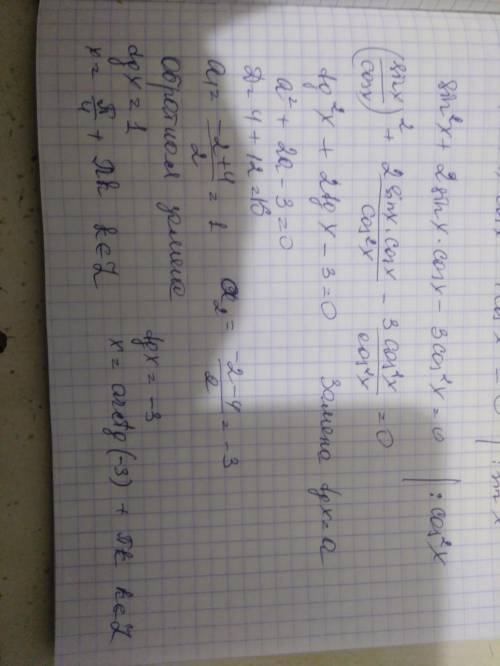 sin²x + 2 sinx · cosx − 3cos²x = 0 | : cos²x
(sinx/cosx)² + 2 sinx · cosx/cos²x − 3 cos²x/cos²x = 0
tg²x + 2tg x − 3 = 0 Замена tgx = a
a² + 2a − 3 = 0
D = 4 + 12 = 16
a₁ = (−2+4)/2 = 1 a₂ = (−2−4)/2 = −3
Обратная замена
tgx = 1 tgx = −3
x = π/4 + πk k∈Z x = arctg(−3) + πk k∈Z